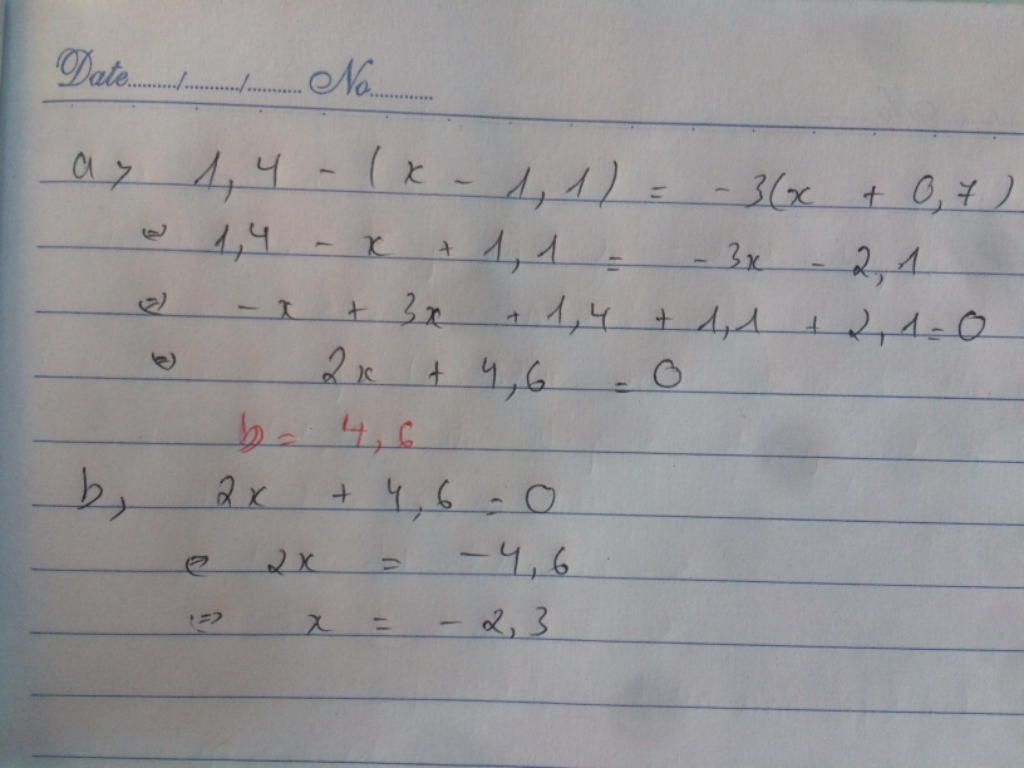 Date........../.........../........... No............
a> 1,4 - (x - 1,1) = -3(x + 0,7)
⇔ 1,4 - x + 1,1 = -3x - 2,1
⇔ -x + 3x + 1,4 + 1,1 + 2,1 = 0
⇔ 2x + 4,6 = 0
b = 4,6
b, 2x + 4,6 = 0
⇔ 2x = -4,6
⇔ x = -2,3